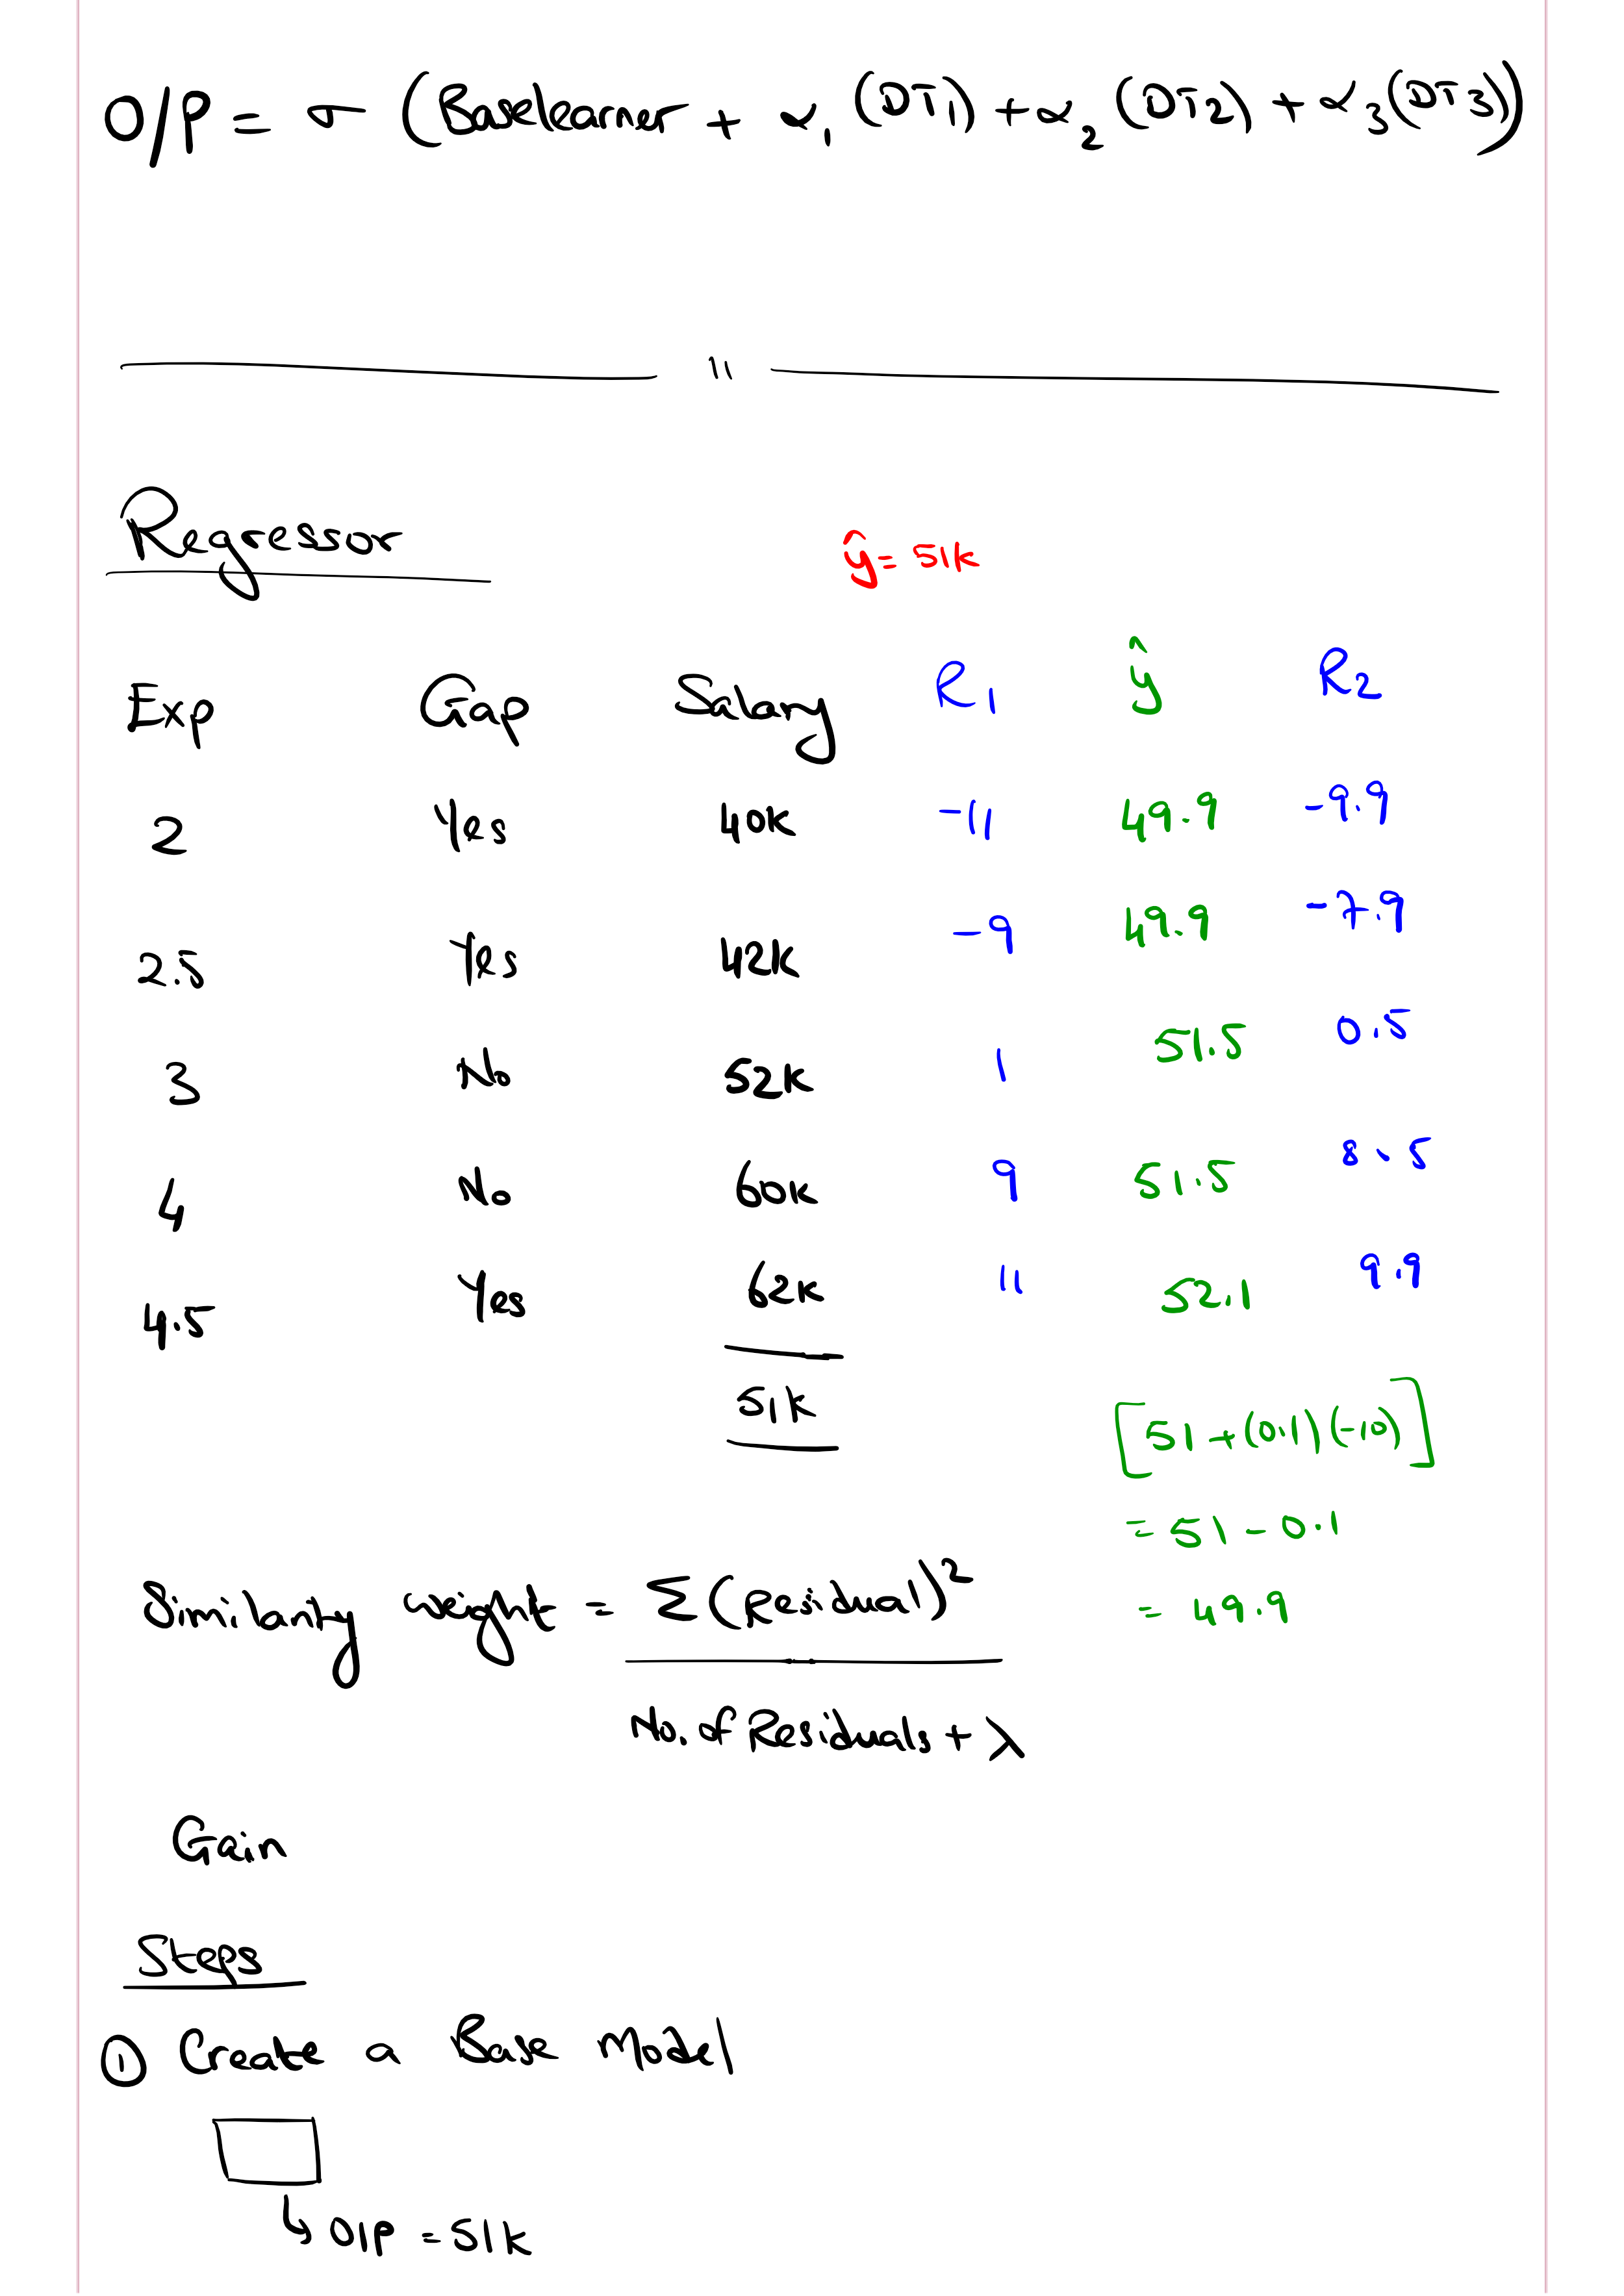 O/P = σ (Baselearner + α₁ (DT1) + α₂ (DT2) + α₃ (DT3))
"
Regressor
ŷ = 51k
Exp Gap Salary R₁ ŷ R₂
2 Yes 40K -11 49.9 -9.9
2.5 Yes 42K -9 49.9 -7.9
3 No 52K 1 51.5 0.5
4 No 60K 9 51.5 8.5
4.5 Yes 62K 11 52.1 9.9
51k
[51 + (0.1)(-10)]
= 51 - 0.1
= 49.9
Similarity weight = Σ(Residual)²
No. of Residuals + λ
Gain
Steps
① Create a Base Model
↳ O/P = 51k